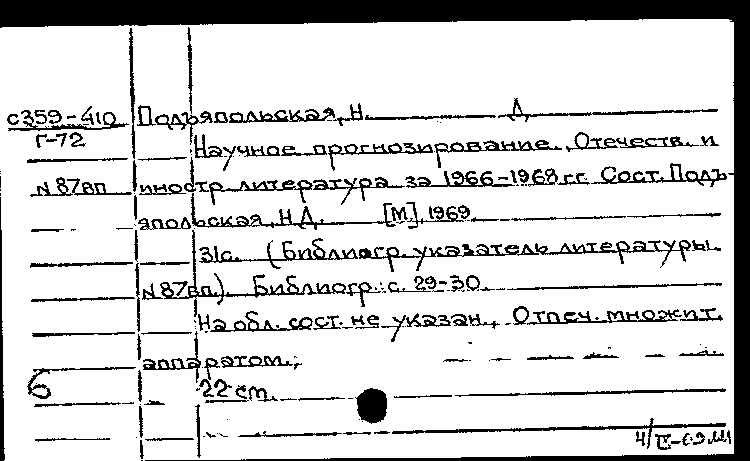 с359-410 Подъяпольская, Н. Д.
Г-72
Научное прогнозирование. Отечеств. и
N 87вп иностр. литература за 1966-1968 гг. Сост. Подъ-
япольская, Н.Д. [М], 1969.
31с. (Библиогр. указатель литературы.
N 87вп). Библиогр.: с. 29-30.
На обл. сост. не указан., Отпеч. множит.
аппаратом.;
6 22 cm.